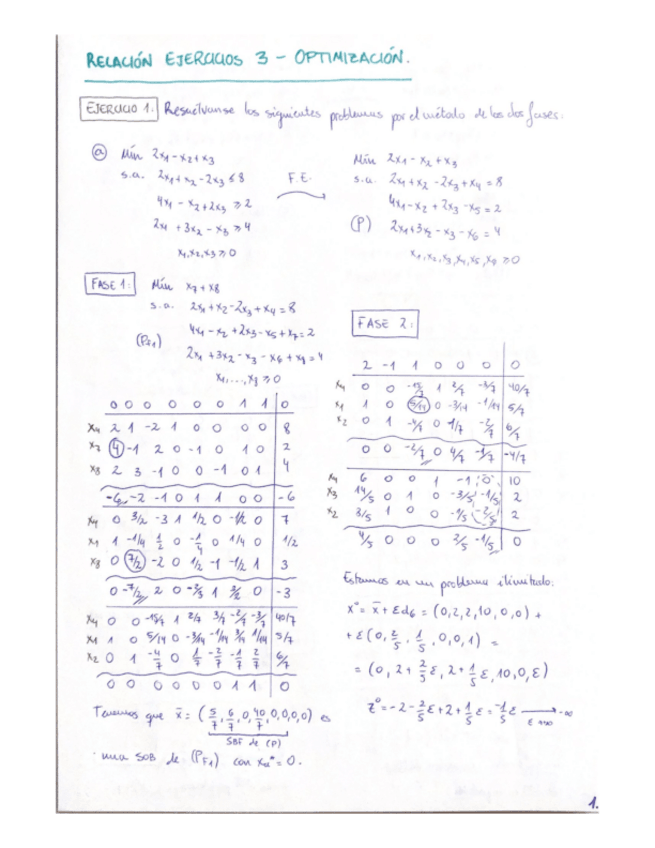 RELACIÓN EJERCICIOS 3 – OPTIMIZACIÓN.
EJERCICIO 1: Resuélvanse los siguientes problemas por el método de las dos fases:
a) Mín 2x₁ - x₂ + x₃
s.a. 2x₁ + x₂ - 2x₃ ≤ 8
4x₁ - x₂ + 2x₃ ≥ 2
2x₁ + 3x₂ - x₃ ≥ 4
x₁, x₂, x₃ ≥ 0
F.E.
Mín 2x₁ - x₂ + x₃
s.a. 2x₁ + x₂ - 2x₃ + x₄ = 8
4x₁ - x₂ + 2x₃ - x₅ = 2
(P) 2x₁ + 3x₂ - x₃ - x₆ = 4
x₁, x₂, x₃, x₄, x₅, x₆ ≥ 0
FASE 1: Mín x₇ + x₈
s.a. 2x₁ + x₂ - 2x₃ + x₄ = 8
4x₁ - x₂ + 2x₃ - x₅ + x₇ = 2
(P_F1) 2x₁ + 3x₂ - x₃ - x₆ + x₈ = 4
x₁, ..., x₈ ≥ 0
0 0 0 0 0 0 1 1 0
x₄ 2 1 -2 1 0 0 0 0 8
x₇ 4 -1 2 0 -1 0 1 0 2
x₈ 2 3 -1 0 0 -1 0 1 4
-6 -2 -1 0 1 1 0 0 -6
x₄ 0 3/2 -3 1 1/2 0 -1/2 0 7
x₁ 1 -1/4 1/2 0 -1/4 0 1/4 0 1/2
x₈ 0 7/2 -2 0 1/2 -1 -1/2 1 3
0 -7/2 2 0 1 0 -3
x₄ 0 0 -15/7 1 2/7 3/7 -2/7 -3/7 40/7
x₁ 1 0 5/14 0 -3/14 -1/14 3/14 1/14 5/7
x₂ 0 1 -4/7 0 1/7 -2/7 -1/7 2/7 6/7
0 0 0 0 0 0 1 1 0
Tenemos que x̄ = (5/7, 6/7, 0, 40/7, 0, 0, 0, 0) es
SBF de (P)
una SOB de (P_F1) con xₐ* = 0.
FASE 2:
2 -1 1 0 0 0 0
x₄ 0 0 -15/7 1 2/7 3/7 40/7
x₁ 1 0 5/14 0 -3/14 -1/14 5/7
x₂ 0 1 -4/7 0 1/7 -2/7 6/7
0 0 -2/7 0 4/7 -1/7 -4/7
x₄ 6 0 0 1 -1 0 10
x₃ 14/5 0 1 0 -3/5 -1/5 2
x₂ 8/5 1 0 0 -1/5 -2/5 2
4/5 0 0 0 2/5 -1/5 0
Estamos en un problema ilimitado:
x* = x̄ + εd₆ = (0, 2, 2, 10, 0, 0) +
+ ε(0, 2/5, 1/5, 0, 0, 1) =
= (0, 2 + 2/5 ε, 2 + 1/5 ε, 10, 0, ε)
z* = -2 - 2/5 ε + 2 + 1/5 ε = -1/5 ε → -∞
ε → ∞
1.